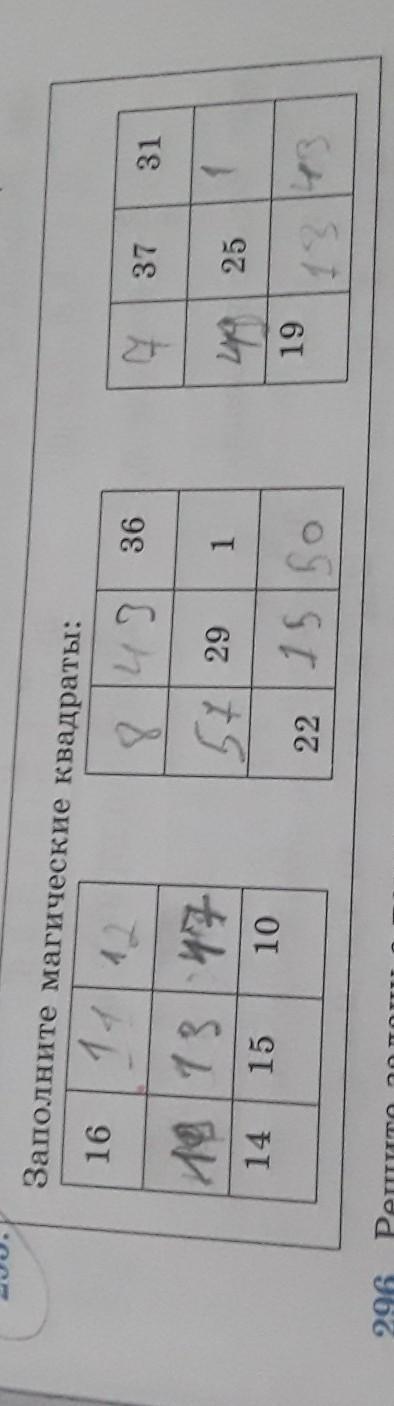 Заполните магические квадраты:
16 11 12
13 17
14 15 10
8 43 36
57 29 1
22 15 50
7 37 31
49 25 1
19 13 43
296 Решите